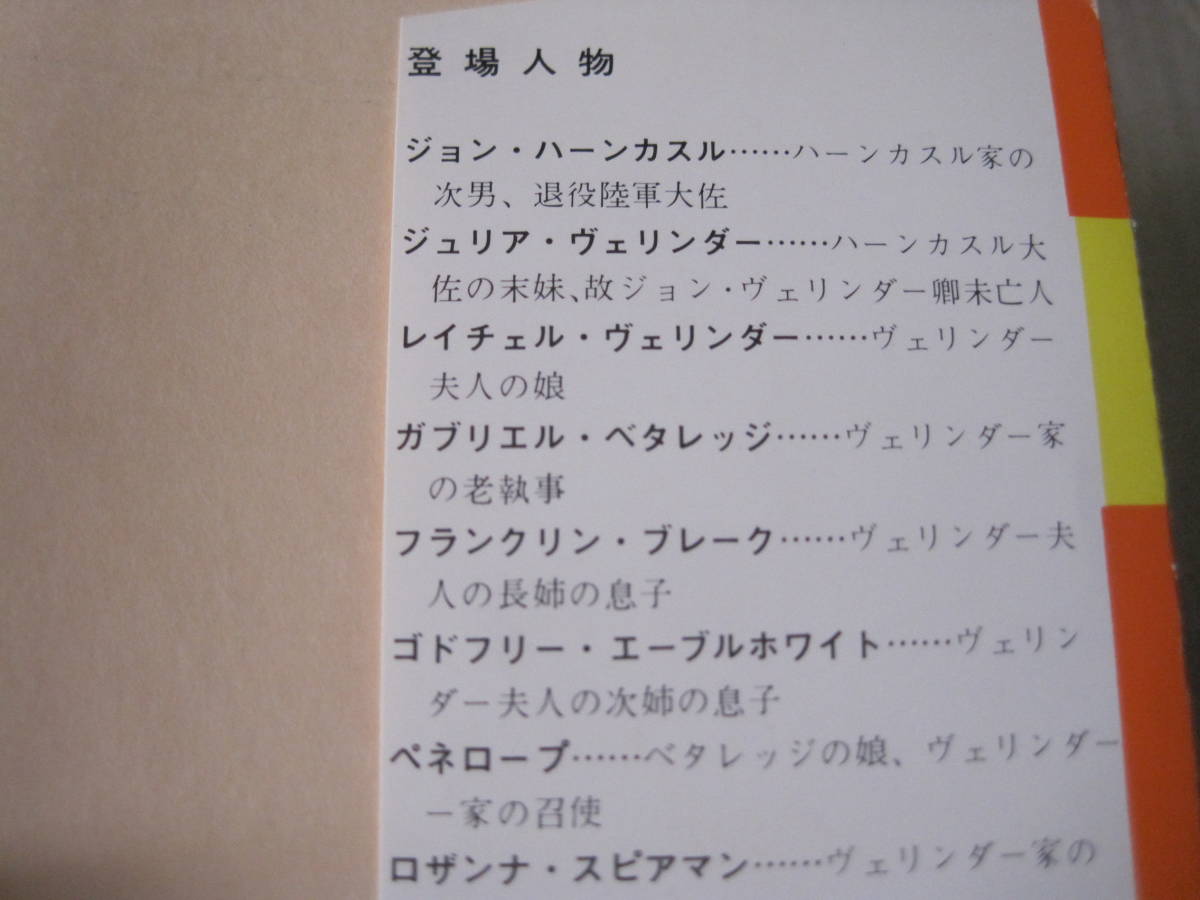 登場人物
ジョン・ハーンカスル……ハーンカスル家の
次男、退役陸軍大佐
ジュリア・ヴェリンダー……ハーンカスル大
佐の末妹、故ジョン・ヴェリンダー卿未亡人
レイチェル・ヴェリンダー……ヴェリンダー
夫人の娘
ガブリエル・ベタレッジ……ヴェリンダー家
の老執事
フランクリン・ブレーク……ヴェリンダー夫
人の長姉の息子
ゴドフリー・エーブルホワイト……ヴェリン
ダー夫人の次姉の息子
ペネロープ……ベタレッジの娘、ヴェリンダー
ー家の召使
ロザンナ・スピアマン……ヴェリンダー家の